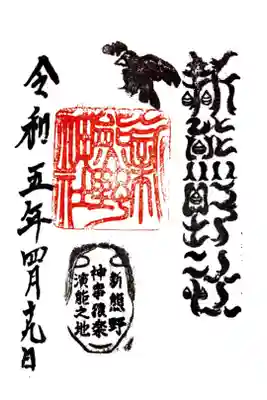 新熊野神社
新熊野
神事猿楽
演能之地
令和五年四月十九日